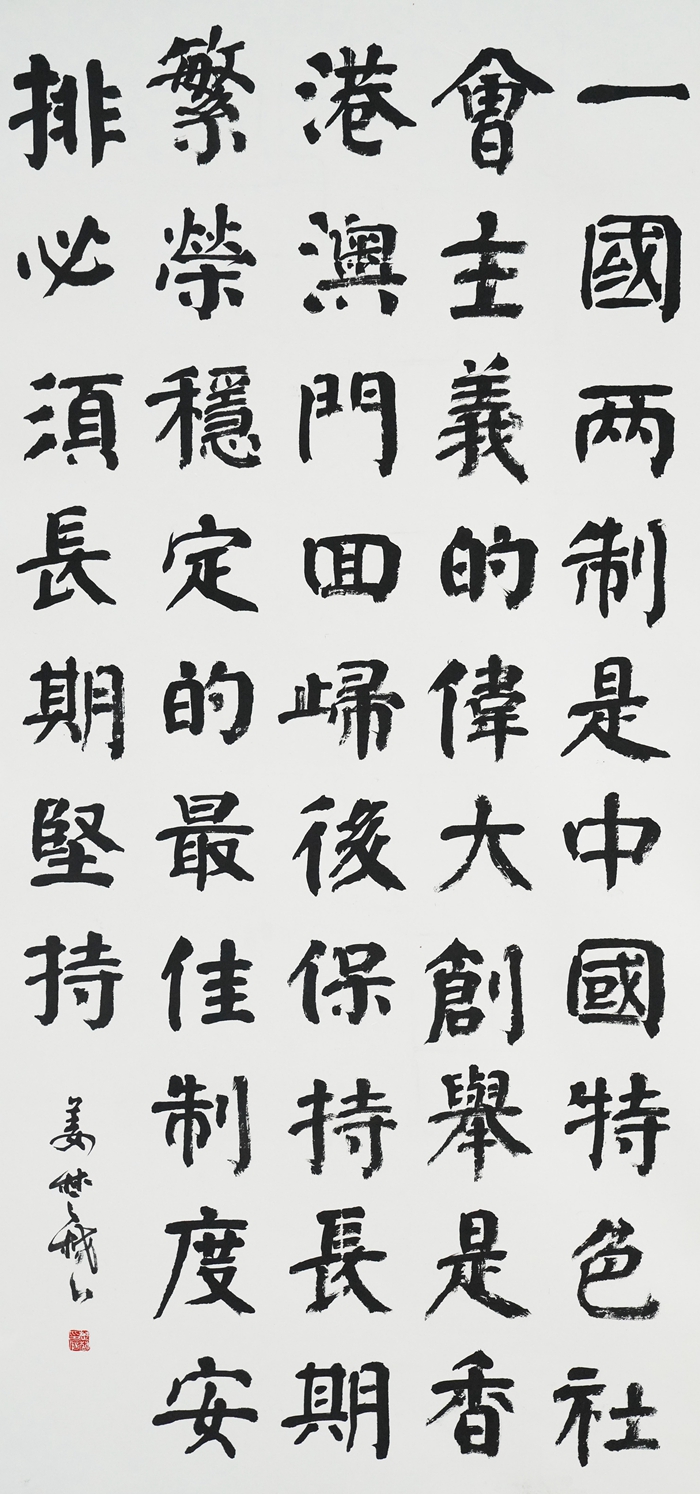 一國两制是中國特色社
會主義的偉大創舉是香
港澳門回歸後保持長期
繁榮穩定的最佳制度安
排必須長期堅持
姜林